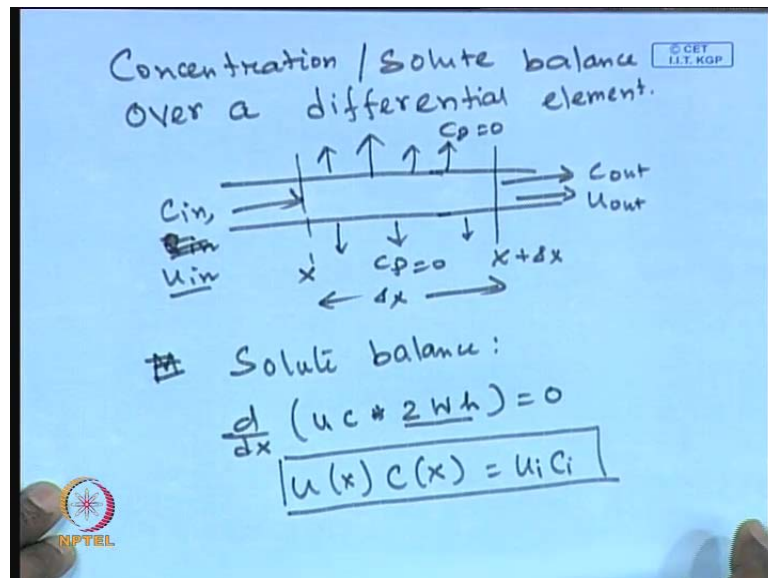 Concentration / Solute balance
© CET
I.I.T. KGP
over a differential element.
Cp = 0
Cin,
Cout
Uout
Uin
x
Cp = 0
x + Δx
Δx
Solute balance:
d/dx (u c * 2 W h) = 0
u (x) C (x) = Ui Ci
NPTEL